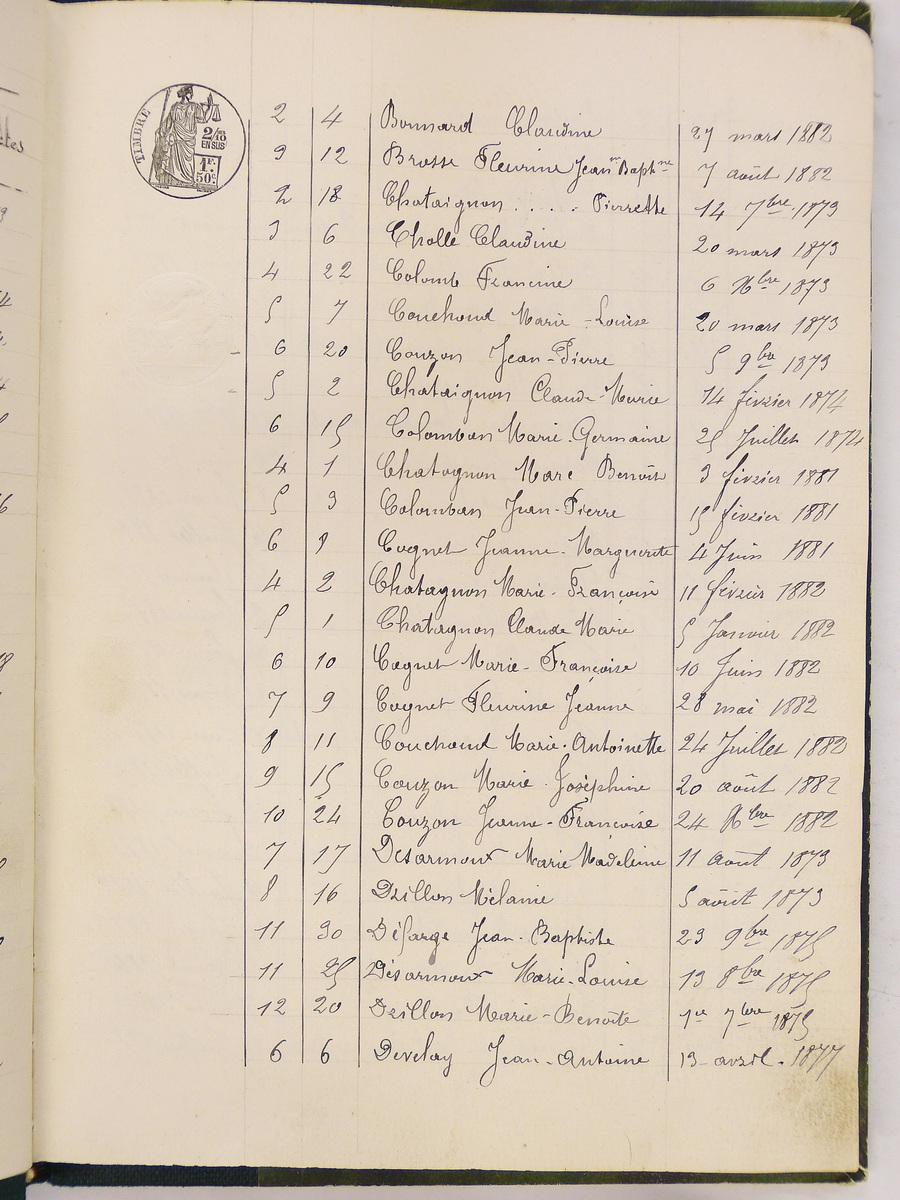 TIMBRE
2/10
EN SUS
1F.
50c
2 4 Bonnard Claudine 27 mars 1882
9 12 Brosse Fleurine Jeanne Baptne 7 août 1882
2 18 Chataignon . . . . Pierrette 14 7bre 1873
3 6 Cholle Claudine 20 mars 1873
4 22 Colomb Francine 6 Xbre 1873
5 7 Couchoud Marie-Louise 20 mars 1873
6 20 Couzon Jean-Pierre 5 9bre 1873
5 2 Chataignon Claude-Marie 14 février 1874
6 15 Colomban Marie-Germaine 25 Juillet 1874
4 1 Chatagnon Marc Benoît 3 février 1881
5 3 Colomban Jean-Pierre 15 février 1881
6 8 Cognet Jeanne-Marguerite 4 Juin 1881
4 2 Chatagnon Marie-Françoise 11 février 1882
5 1 Chatagnon Claude Marie 5 Janvier 1882
6 10 Cognet Marie-Françoise 10 Juin 1882
7 9 Cognet Fleurine Jeanne 28 mai 1882
8 11 Couchoud Marie-Antoinette 24 Juillet 1882
9 15 Couzon Marie Joséphine 20 août 1882
10 24 Couzon Jeanne-Françoise 24 Xbre 1882
7 17 Desarmoux Marie Madeleine 11 août 1873
8 16 Drillon Mélanie 5 août 1873
11 30 Défarge Jean-Baptiste 23 9bre 1875
11 25 Désarmoux Marie-Louise 13 8bre 1875
12 20 Drillon Marie-Benoîte 1er 7bre 1875
6 6 Develay Jean-Antoine 13 avril 1877